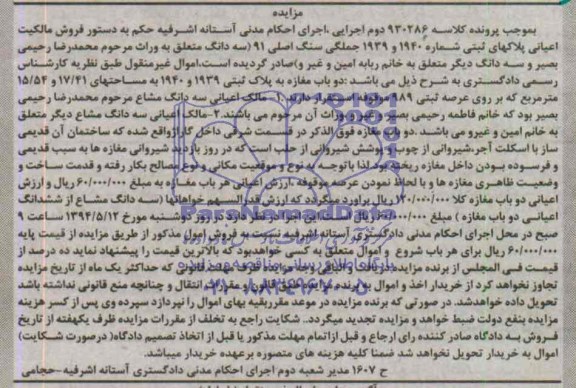 مزایده
بموجب پرونده کلاسه ۹۳۰۲۸۶ دوم اجرایی ،اجرای احکام مدنی آستانه اشرفیه حکم به دستور فروش مالکیت
اعیانی پلاکهای ثبتی شماره ۱۹۴۰ و ۱۹۳۹ جملگی سنگ اصلی ۹۱ (سه دانگ متعلق به وراث مرحوم محمدرضا رحیمی
بصیر و سه دانگ دیگر متعلق به خانم ربابه امین و غیر و)صادر گردیده است.اموال غیرمنقول طبق نظریه کارشناس
رسمی دادگستری به شرح ذیل می باشد :دو باب مغازه به پلاک ثبتی ۱۹۳۹ و ۱۹۴۰ به مساحتهای ۱۷/۴۱ و ۱۵/۵۴
مترمربع که بر روی عرصه ثبتی ۹۸۹ موقوفه استقرار دارد مالک اعیانی سه دانگ مشاع مرحوم محمدرضا رحیمی
بصیر بود که خانم فاطمه رحیمی بصیر و غیره وراث آن مرحوم می باشند.۲-مالک اعیانی سه دانگ مشاع دیگر متعلق
به خانم امین و غیرو می باشد .دو باب مغازه فوق الذکر در قسمت شرقی داخل کاراژواقع شده که ساختمان آن قدیمی
ساز با اسکلت آجر،شیروانی از چوب و پوشش شیروانی از حلب است که در روز بازدید شیروانی مغازه ها به سبب قدیمی
و فرسوده بودن داخل مغازه ریخته بود لذا باتوجه به نوع و موقعیت مکانی و نوع مصالح بکار رفته و قدمت ساخت و
وضعیت ظاهری مغازه ها و با لحاظ نمودن عرصه موقوفه ،ارزش اعیانی هر باب مغازه به مبلغ ۶۰/۰۰۰/۰۰۰ ریال و ارزش
اعیانی دو باب مغازه کلا ۱۲۰/۰۰۰/۰۰۰ ریال براورد میگردد که ارزش قدرالسهم خواهانها (سه دانگ مشاع از ششدانگ
اعیانی دو باب مغازه ) مبلغ ۶۰/۰۰۰/۰۰۰ ریال این اجرا در نظر دارد در روز دوشنبه مورخ ۱۳۹۴/۵/۱۲ ساعت ۹
صبح در محل اجرای احکام مدنی دادگستری آستانه اشرفیه نسبت به فروش اموال مذکور از طریق مزایده از قیمت پایه
۶۰/۰۰۰/۰۰۰ ریال برای هر باب شروع و اموال متعلق به کسی خواهدبود که بالاترین قیمت را پیشنهاد نماید ده درصد از
قیمت فی المجلس از برنده مزایده دریافت و الباقی وجه مزایده ظرف مهلت مقرر که حداکثر یک ماه از تاریخ مزایده
تجاوز نخواهد کرد از خریدار اخذ و اموال به برنده مزایده طبق قانون و مقررات انتقال و چنانچه منع قانونی نداشته باشد
تحویل داده خواهدشد. در صورتی که برنده مزایده در موعد مقرربقیه بهای اموال را نپردازد سپرده وی پس از کسر هزینه
مزایده بنفع دولت ضبط خواهد و مزایده تجدید میگردد.. شکایت راجع به تخلف از مقررات مزایده ظرف یکهفته از تاریخ
فروش به دادگاه صادر کننده رای ارجاع و قبل ازاتمام مهلت مذکور یا قبل از اتخاذ تصمیم دادگاه( درصورت شکایت)
اموال به خریدار تحویل نخواهد شد ضمنا کلیه هزینه های متصوره برعهده خریدار میباشد.
ح ۱۶۰۷ مدیر شعبه دوم اجرای احکام مدنی دادگستری آستانه اشرفیه -حجامی